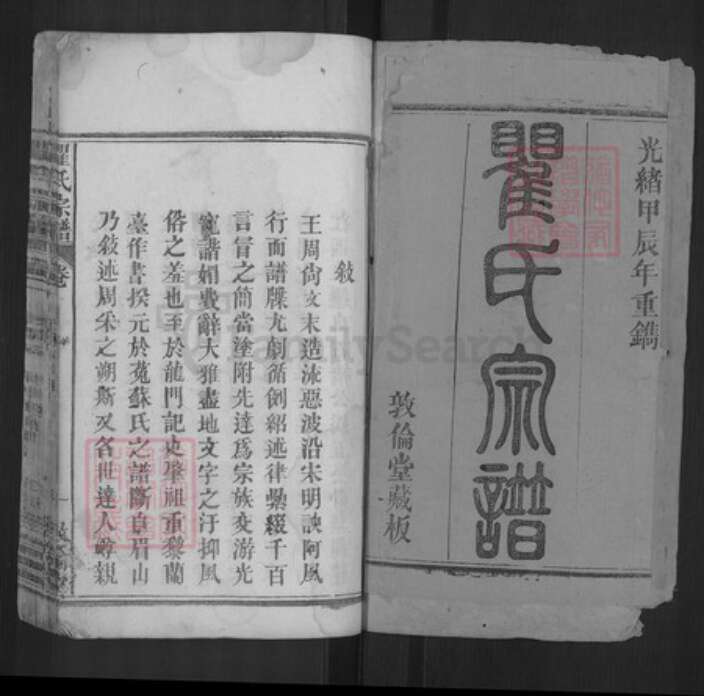 光緒甲辰年重鐫
瞿氏宗譜
敦倫堂藏板
敘
王周尚文末造流惡波沿宋明諛阿風
行而譜牒尤劇循例紹述律縈綴千百
言冒之簡當塗附先達為宗族交游光
寵諧媚戔辭大雅盡地文字之汙抑風
俗之羞也至於龍門記史肇祖重黎蘭
臺作書揆元於菟蘇氏之譜斷自眉山
乃敍述周采之朔斯又名世達人尊親
瞿氏宗譜
卷
FamilySearch